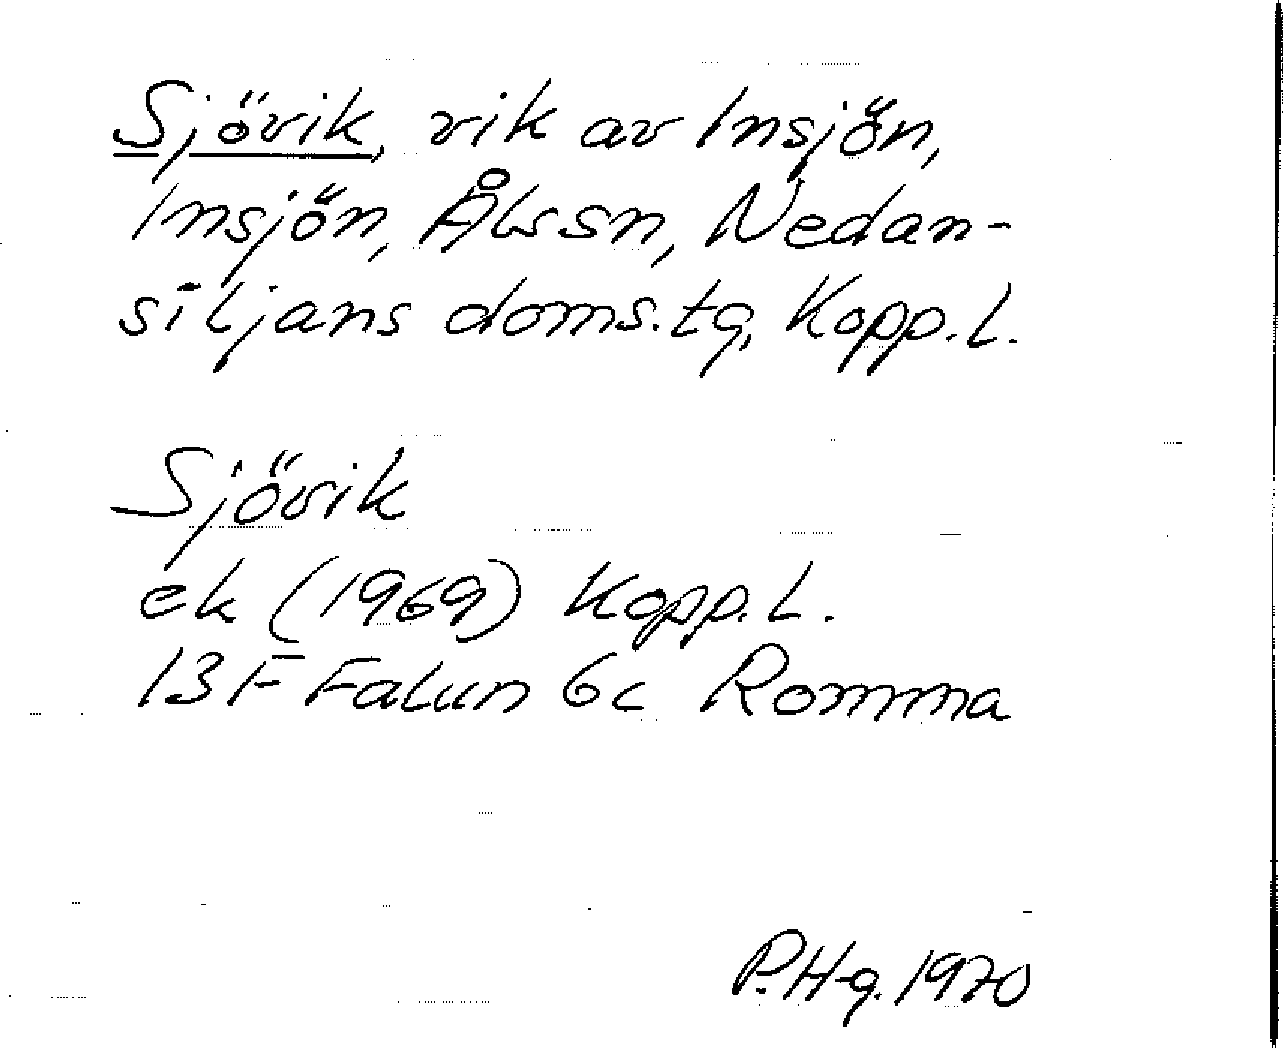 Sjövik, vik av Insjön,
Insjön, Åls sn, Nedan-
siljans doms.tg, Kopp. l.
Sjövik
ek (1969) Kopp. L.
13 F Falun 6c Romma
P.H-g. 1970